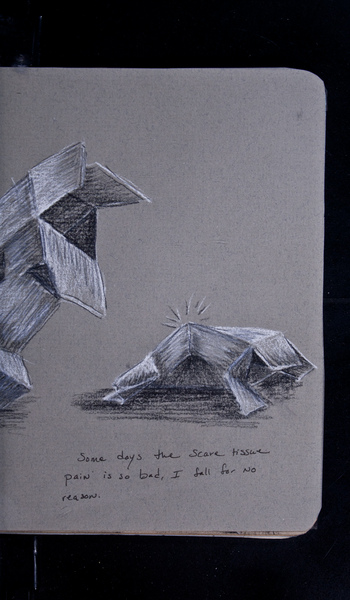 Some days the scare tissue
pain is so bad, I fall for no
reason.